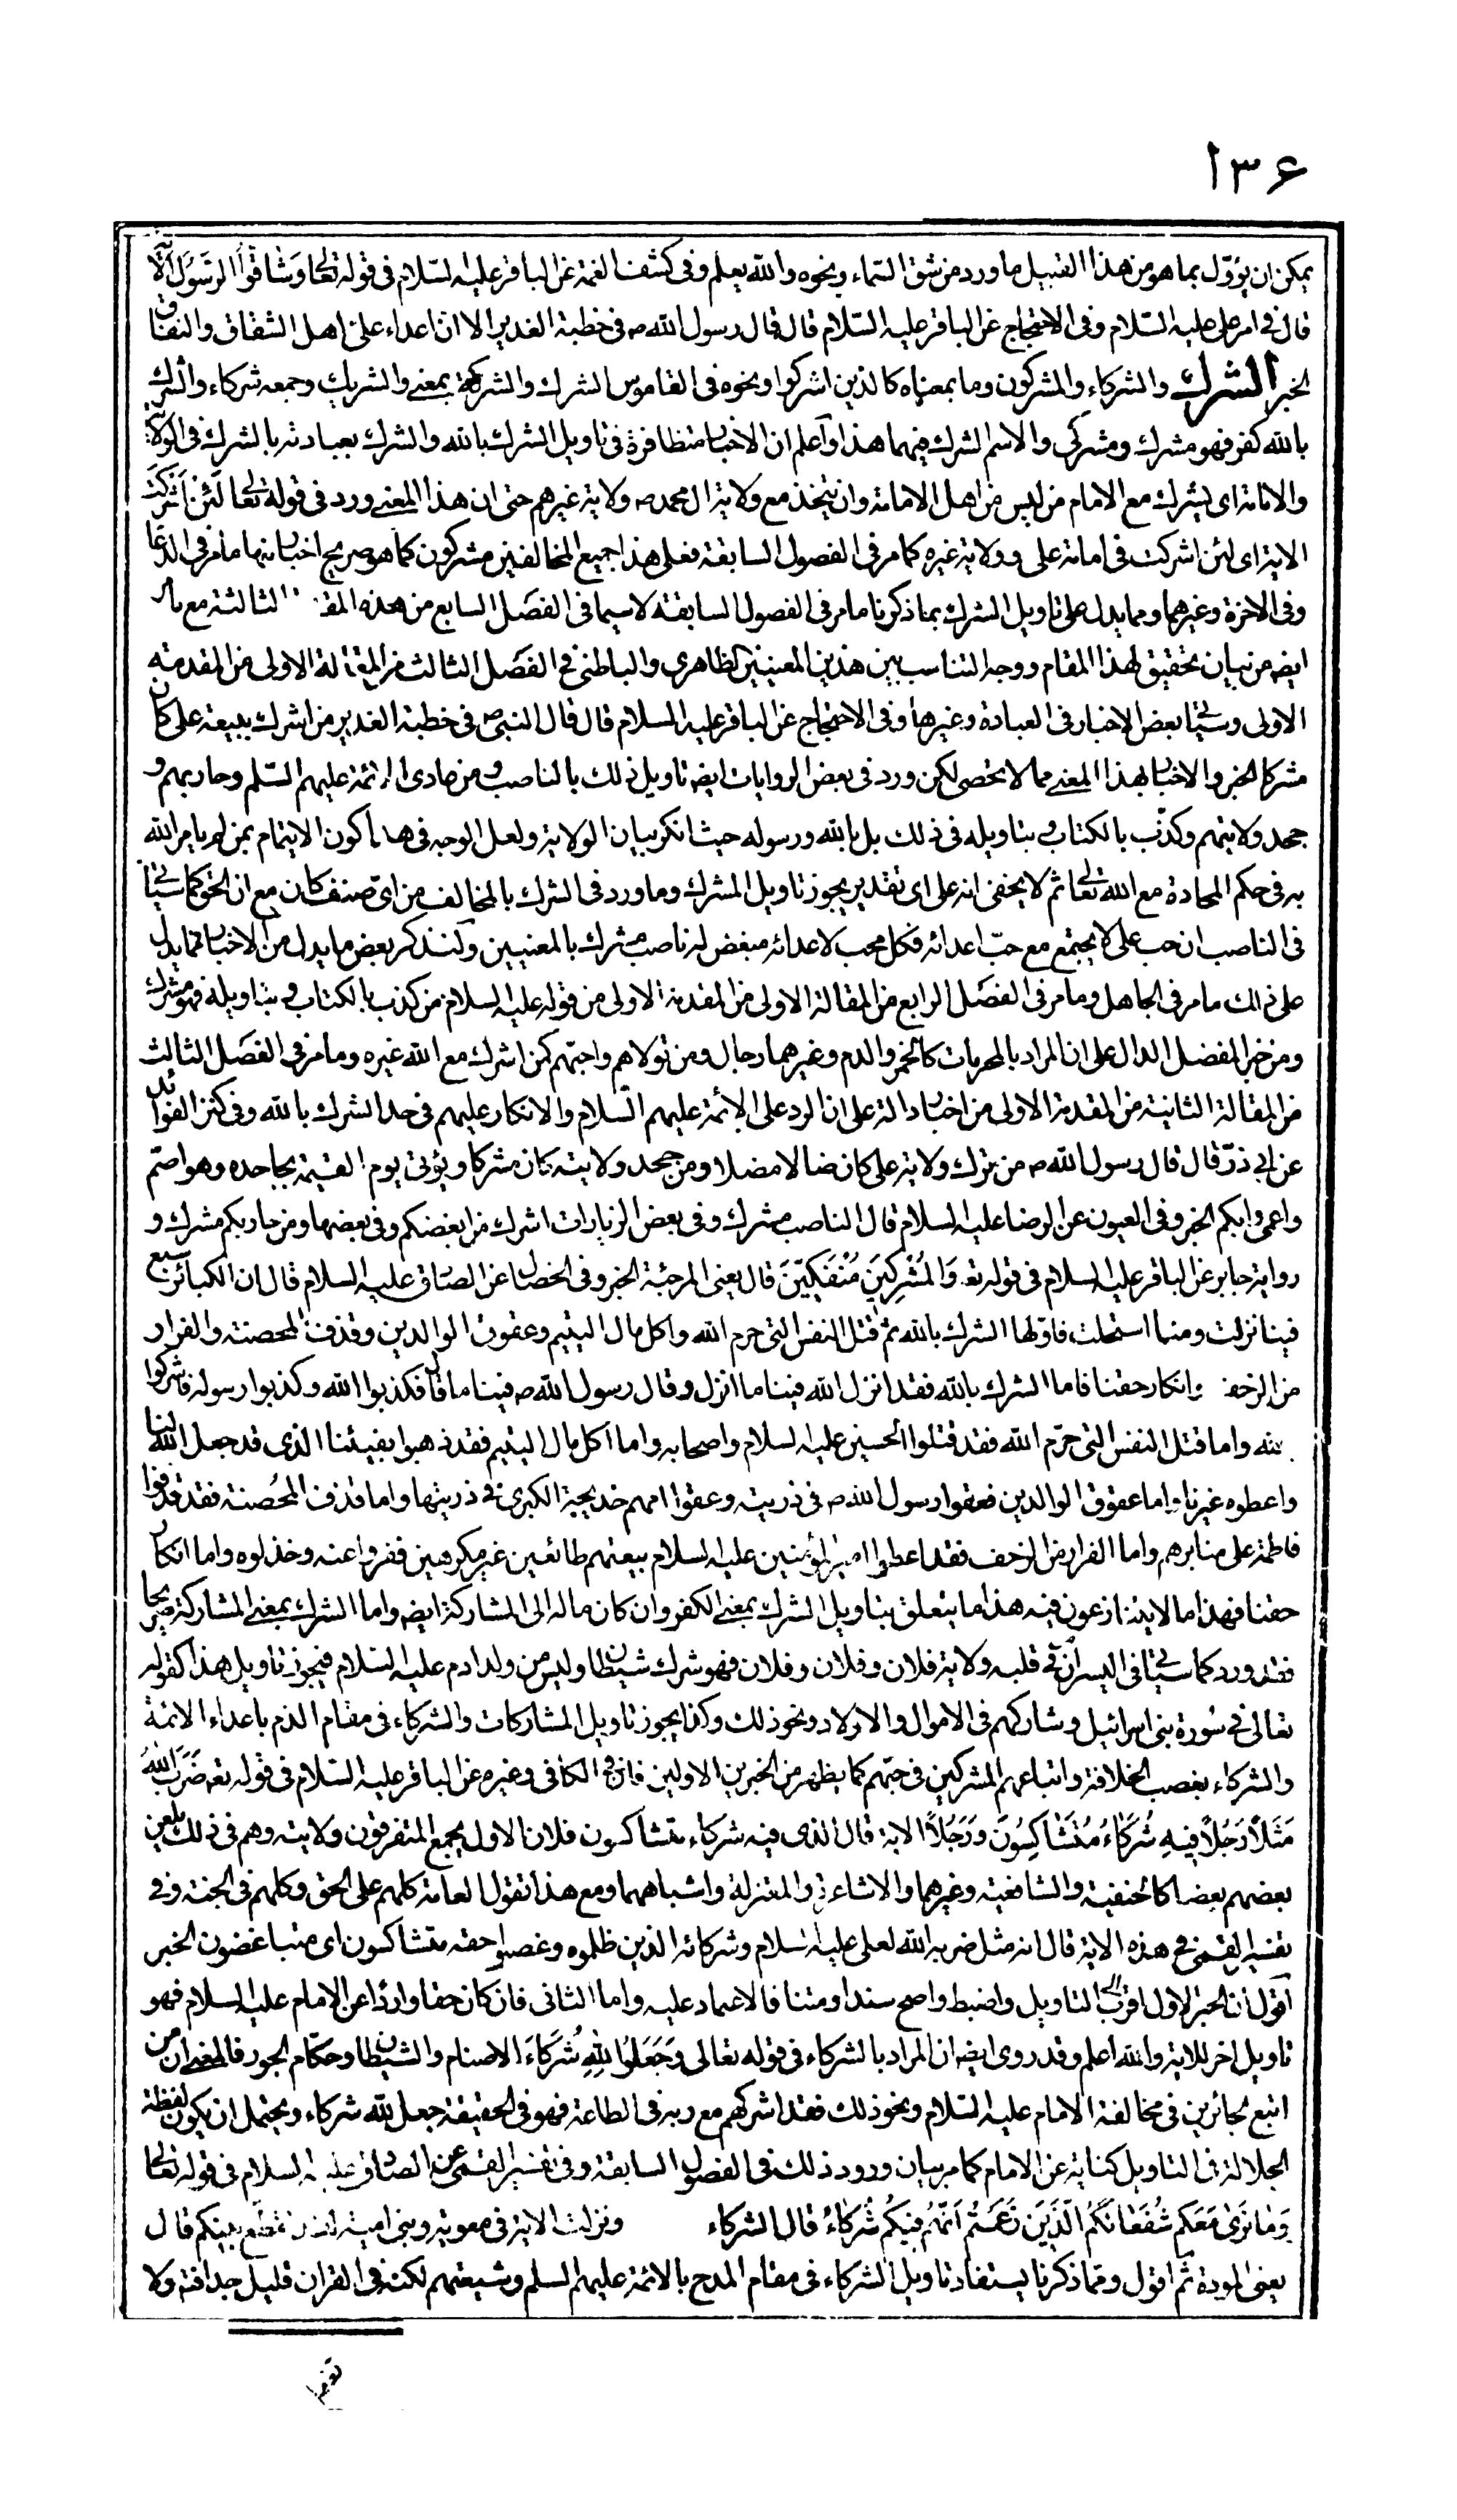 ۱۳۶
يمكن ان يؤوّل بما هو من هذا القبيل ما ورد من شق السّماء ونحوه والله يعلم وفى كشف الغمة عن الباقر عليه السّلام فى قوله تعالى وَشٰاقُّوا الرَّسُولَ الآية
قال فى امر على عليه السّلام وفى الاحتجاج عن الباقر عليه السّلام قال قال رسول الله ص فى خطبة الغدير الا ان اعداء على اهل الشقاق والنفاق
الخبر الشرك والشركاء والمشركون وما بمعناه كالذين اشركوا ونحوه فى القاموس الشرك والشركة بمعنى والشريك وجمعه شركاء واشرك
بالله كفر فهو مشرك ومشركى والاسم الشرك فيهما هذا واعلم ان الاخبار متظافرة فى تاويل الشرك بالله والشرك بعبادته بالشرك فى الولاية
والامامة اى يشرك مع الامام من ليس من اهل الامامة وان يتخذ مع ولاية ال محمد ص ولاية غيرهم حتى ان هذا المعنى ورد فى قوله تعالى لَئِنْ اَشْرَكْتَ
الاية اى لئن اشركت فى امامة على و ولاية غيره كما مر فى الفصول السابقة فعلى هذا جميع المخالفين مشركون كما هو صريح اخبار منها ما مر فى الدعا
وفى الاخرة وغيرهما ومما يدل على تاويل الشرك بما ذكرنا ما مر فى الفصول السابقة لاسيما فى الفصل السابع من هذه المقـ الثالثة مع ما مر
ايضه من بيان تحقيق لهذا المقام ووجه التناسب بين هذين المعنيين الظاهرى والباطنى فى الفصل الثالث من المقالة الاولى من المقدمة
الاولى وسيأتى بعض الاخبار فى العبادة وغيرها وفى الاحتجاج عن الباقر عليه السلام قال قال النبى ص فى خطبة الغدير من اشرك ببيعة على كان
مشركا الخبر والاخبار بهذا المعنى مما لا تحصى لكن ورد فى بعض الروايات ايضه تاويل ذلك بالناصب ومن عادى الائمة عليهم السّلم وحاربهم و
جحد ولايتهم وكذّب بالكتاب و بتاويله فى ذلك بل بالله ورسوله حيث انكر بيان الولاية ولعل الوجه فى هذا كون الايتمام بمن لم يامر الله
به فى حكم المحادة مع الله تعالى ثم لا يخفى انه على اى تقدير يجوز تاويل المشرك وما ورد فى الشرك بالمخالف من اىّ صنف كان مع ان الحق كما سيأتى
فى الناصب ان حب على لا يجتمع مع حبّ اعدائه فكل محب لاعدائه مبغض له ناصب مشرك بالمعنيين ولنذكر بعض ما يدل من الاخبار مما يدل
على ذلك ما مر فى الجاهل وما مر فى الفصل الرابع من المقالة الاولى من المقدمة الاولى من قوله عليه السلام من كذب بالكتاب و بتاويله فهو مشرك
ومن خبر المفضل الدال على ان المراد بالمحرمات كالخمر والدم وغيرهما رجال ومن تولاهم واحبهم كمن اشرك مع الله غيره وما مر فى الفصل الثالث
من المقالة الثانية من المقدمة الاولى من اخبار دالة على ان الرد على الائمة عليهم السّلام والانكار عليهم فى حد الشرك بالله وفى كنز الفوائد
عن ابى ذرّ قال قال رسول الله ص من ترك ولاية على كان ضالا مضلا ومن جحد ولايته كان مشركا ويؤتى يوم القيمة بجاحده وهو اصمّ
واعمى وابكم الخبر وفى العيون عن الرضا عليه السلام قال الناصب مشرك وفى بعض الزيارات اشرك من ابغضكم وفى بعضها ومن حاربكم مشرك و
رواية جابر عن الباقر عليه السلام فى قوله تعه وَالْمُشْرِكِينَ مُنْفَكِّينَ قال يعنى المرجئة الخبر وفى الخصال عن الصادق عليه السلام قال ان الكبائر سبع
فينا نزلت ومنا استحلت فاوّلها الشرك بالله ثم قتل النفس التى حرم الله واكل مال اليتيم وعقوق الوالدين وقذف المحصنة والفرار
من الزحف وانكار حقنا فاما الشرك بالله فقد انزل الله فينا ما انزل وقال رسول الله ص فينا ما قال فكذبوا الله وكذبوا رسوله فاشركوا
بالله واما قتل النفس التى حرّم الله فقد قتلوا الحسين عليه السلام واصحابه واما اكل مال اليتيم فقد ذهبوا بفيئنا الذى قد جعل الله لنا
واعطوه غيرنا واما عقوق الوالدين فعقوا رسول الله ص فى ذريته وعقوا امهم خديجة الكبرى فى ذريتها واما قذف المحُصنة فقد قذفوا
فاطمة على منابرهم واما الفرار من الزحف فقد اعطوا امير المؤمنين عليه السلام بيعتهم طائعين غير مكرهين ففروا عنه وخذلوه واما انكار
حقنا فهذا مما لا يتنازعون فيه هذا ما يتعلق بتاويل الشرك بمعنى الكفر وان كان ماله الى المشاركة ايضه واما الشرك بمعنى المشاركة صريحا
فقد ورد كما سيأتى فى اليسر ان فى قلبه ولاية فلان وفلان وفلان فهو شرك شيطان وليس من ولد ادم عليه السّلام فيجوز تاويل هذا كقوله
تعالى فى سُورة بنى اسرائيل وشاركهم فى الاموال والاولاد ونحو ذلك وكذا يجوز تاويل المشاركات والشركاء فى مقام الذم باعداء الائمة
والشركاء بغصب الخلافة واتباعهم المشركين فى حبّهم كما يظهر من الخبرين الاولين فان فى الكافى وغيره عن الباقر عليه السّلام فى قوله تعه ضَرَبَ اللهُ
مَثَلاً رَجُلاً فِيهِ شُرَكَاءُ مُتَشَاكِسُونَ وَرَجُلاً الاية قال الذى فيه شركاء متشاكسون فلان الاول يجمع المتفرقون ولايته وهم فى ذلك يلعن
بعضهم بعضا كالحنفية والشافعية وغيرهما والاشاعرة والمعتزلة واشباههما ومع هذا تقول العامة كلهم على الحق وكلهم فى الجنة وفى
تفسير القمى فى هذه الاية قال انه مثل ضربه الله لعلى عليه السلام وشركائه الذين ظلموه وغصبوا حقه متشاكسون اى متباغضون الخبر
اقول ان الخبر الاول اقرب الى التاويل واضبط واصح سندا ومتنا فالاعتماد عليه واما الثانى فان كان حقا واردا عن الامام عليه السلام فهو
تاويل اخر للاية والله اعلم وقد روى ايضه ان المراد بالشركاء فى قوله تعالى وَجَعَلُوا لِلّهِ شُرَكَاءَ الاصنام والشيطان وحكّام الجور فالمعنى ان من
اتبع الجائرين فى مخالفة الامام عليه السّلام ونحو ذلك فقد اشركهم مع ربه فى الطاعة فهو فى الحقيقة جعل لله شركاء ويحتمل ان يكون لفظة
الجلالة فى التاويل كناية عن الامام كما مر بيان ورود ذلك فى الفصول السابقة وفى تفسير القمى عن الصادق عليه السلام فى قوله تعالى
وَمٰا نَرىٰ مَعَكُم شُفَعٰائَكُمُ الَّذِينَ زَعَمْتُم اَنَّهُمْ فِيكُم شُرَكٰاءُ قال الشركاء ونزلت الاية فى معوية وبنى امية لقد تقطّع بينكم قال
يعنى المودة ثم اقول ومما ذكرنا يستفاد تاويل الشركاء فى مقام المدح بالائمة عليهم السلم وشيعتهم لكنه فى القران قليل جدا فتم ولا